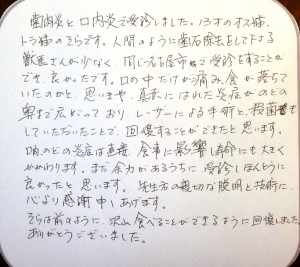 歯肉炎と口内炎で受診しました。13才のオス猫、
トラ猫のそらです。人間のように歯石除去をして下さる
獣医さんが少なく、同じ名古屋市内で受診をすることが
でき、良かったです。口の中だけが痛み、食が落ちて
いたのかと、思いきや、真赤にはれた炎症がのどの
奥まで広がっており、レーザーによる手術と、殺菌を
していただいたことで、回復することができたと思います。
口内、のどの炎症は直接 食事に影響し寿命にも大きく
かかわります。まだ余力があるうちに受診しほんとうに
良かったと思います。先生方の親切な説明と技術に、
心より感謝申しあげます。
そらは前のように、沢山食べることができるように回復しました。
ありがとうございました。